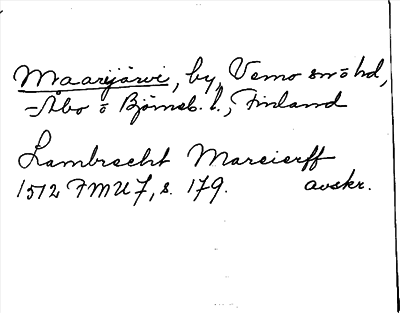 Maarijärvi, by, Vemo sn o hd,
Åbo o Björneb. l., Finland
Lambrecht Marcierff
1512 FMU 7, s. 179. avskr.